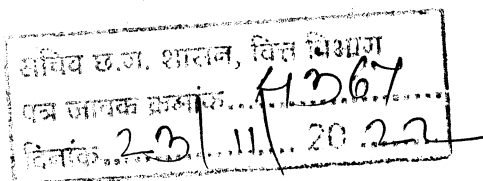 सचिव छ.ग. शासन, वित्त विभाग
पत्र जावक क्रमांक....4367
दिनांक..23/11....20.22